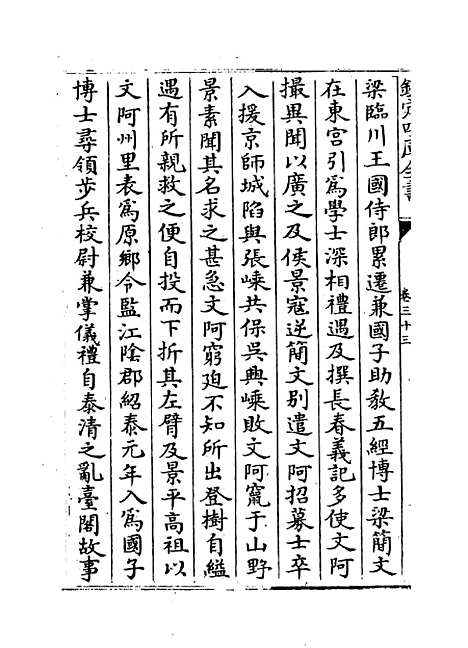 欽定四庫全書
卷三十三
梁臨川王國侍郎累遷兼國子助教五經博士梁簡文
在東宮引爲學士深相禮遇及撰長春義記多使文阿
撮異聞以廣之及侯景寇逆簡文别遣文阿招募士卒
入援京師城陷與張嵊共保吳興嵊敗文阿竄于山野
景素聞其名求之甚急文阿窮迫不知所出登樹自縊
遇有所親救之便自投而下折其左臂及景平高祖以
文阿州里表爲原鄉令監江陰郡紹泰元年入爲國子
博士尋領步兵校尉兼掌儀禮自泰清之亂臺閣故事